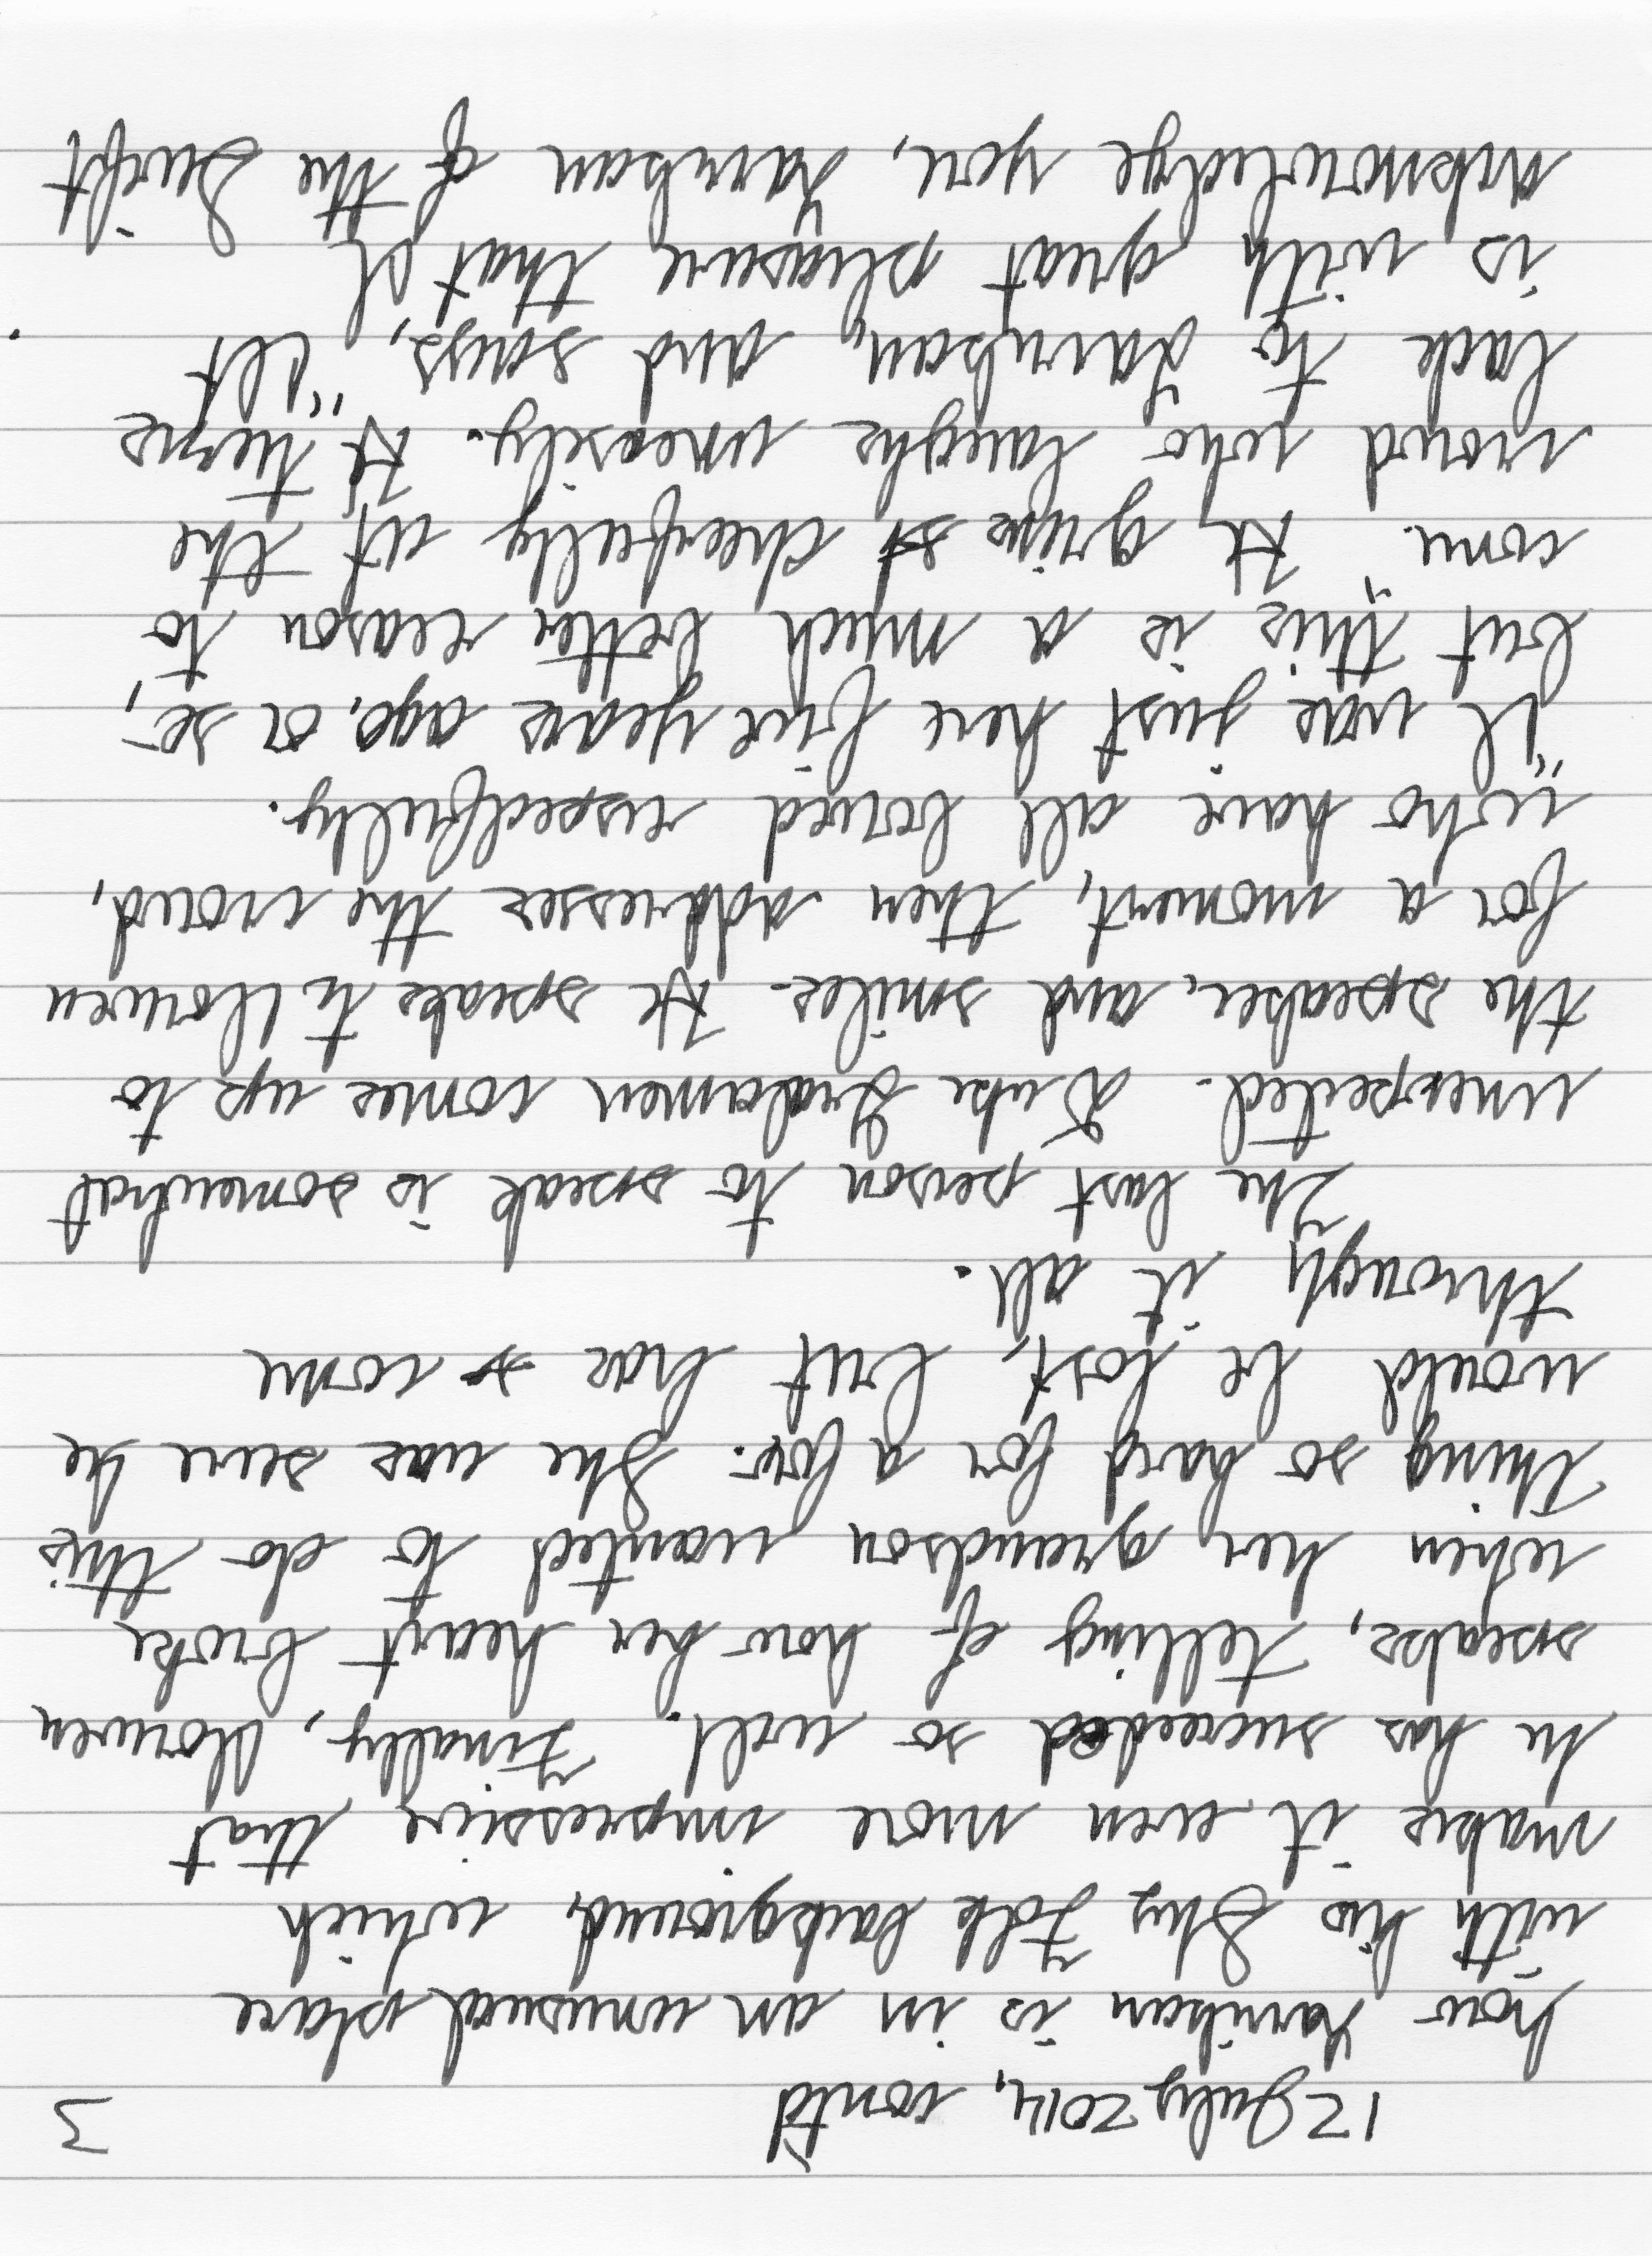 12 July 2014, cont'd 3
how Yarrikan is in an unusual place
with his Shy Folk background, which
makes it even more impressive that
he has succeeded so well. Finally, Morwen
speaks, telling of how her heart broke
when her grandson wanted to do this
thing so hard for a fox. She was sure he
would be lost, but has come
through it all.
The last person to speak is somewhat
unexpected. Duke Indamen comes up to
the speaker, and smiles. He speaks to Morwen
for a moment, then addresses the crowd,
who have all bowed respectfully.
"I was just here five years ago, or so,
but this is a much better reason to
come." He grins cheerfully at the
crowd who laughs uneasily. He turns
back to Yarrikan, and says, "It
is with great pleasure that I
acknowledge you, Yarrikan of the Swift